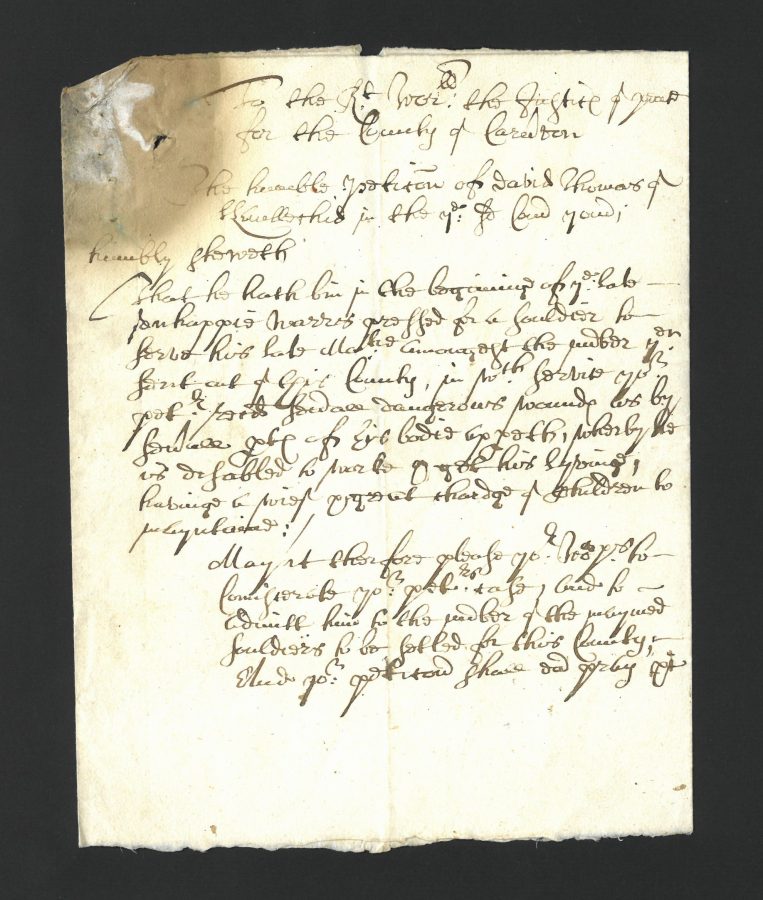 To the Rt Worll: the Justices of peace
for the County of Carnvon
The humble peticon of David Thomas of
in the
humbly sheweth
That he hath bin in the begining of ye late
unhappie warrs pressed for a souldier to
serve his late Matie amongest the number yen
sent out of this County, in wch service yor
petr: recd severall dangerous wounds as by
severall ptes of his bodie appeth, wherby he
is disabled to worke or get his lyving,
havinge a wief & great chardge of children to
mayntaine:/
May it therfore please yor Worps: to
Consiterate yor petrs case, And to
Admitt him to the number of the maymed
souldiers to be setled for this County,
And yor peticoner shall pray &c